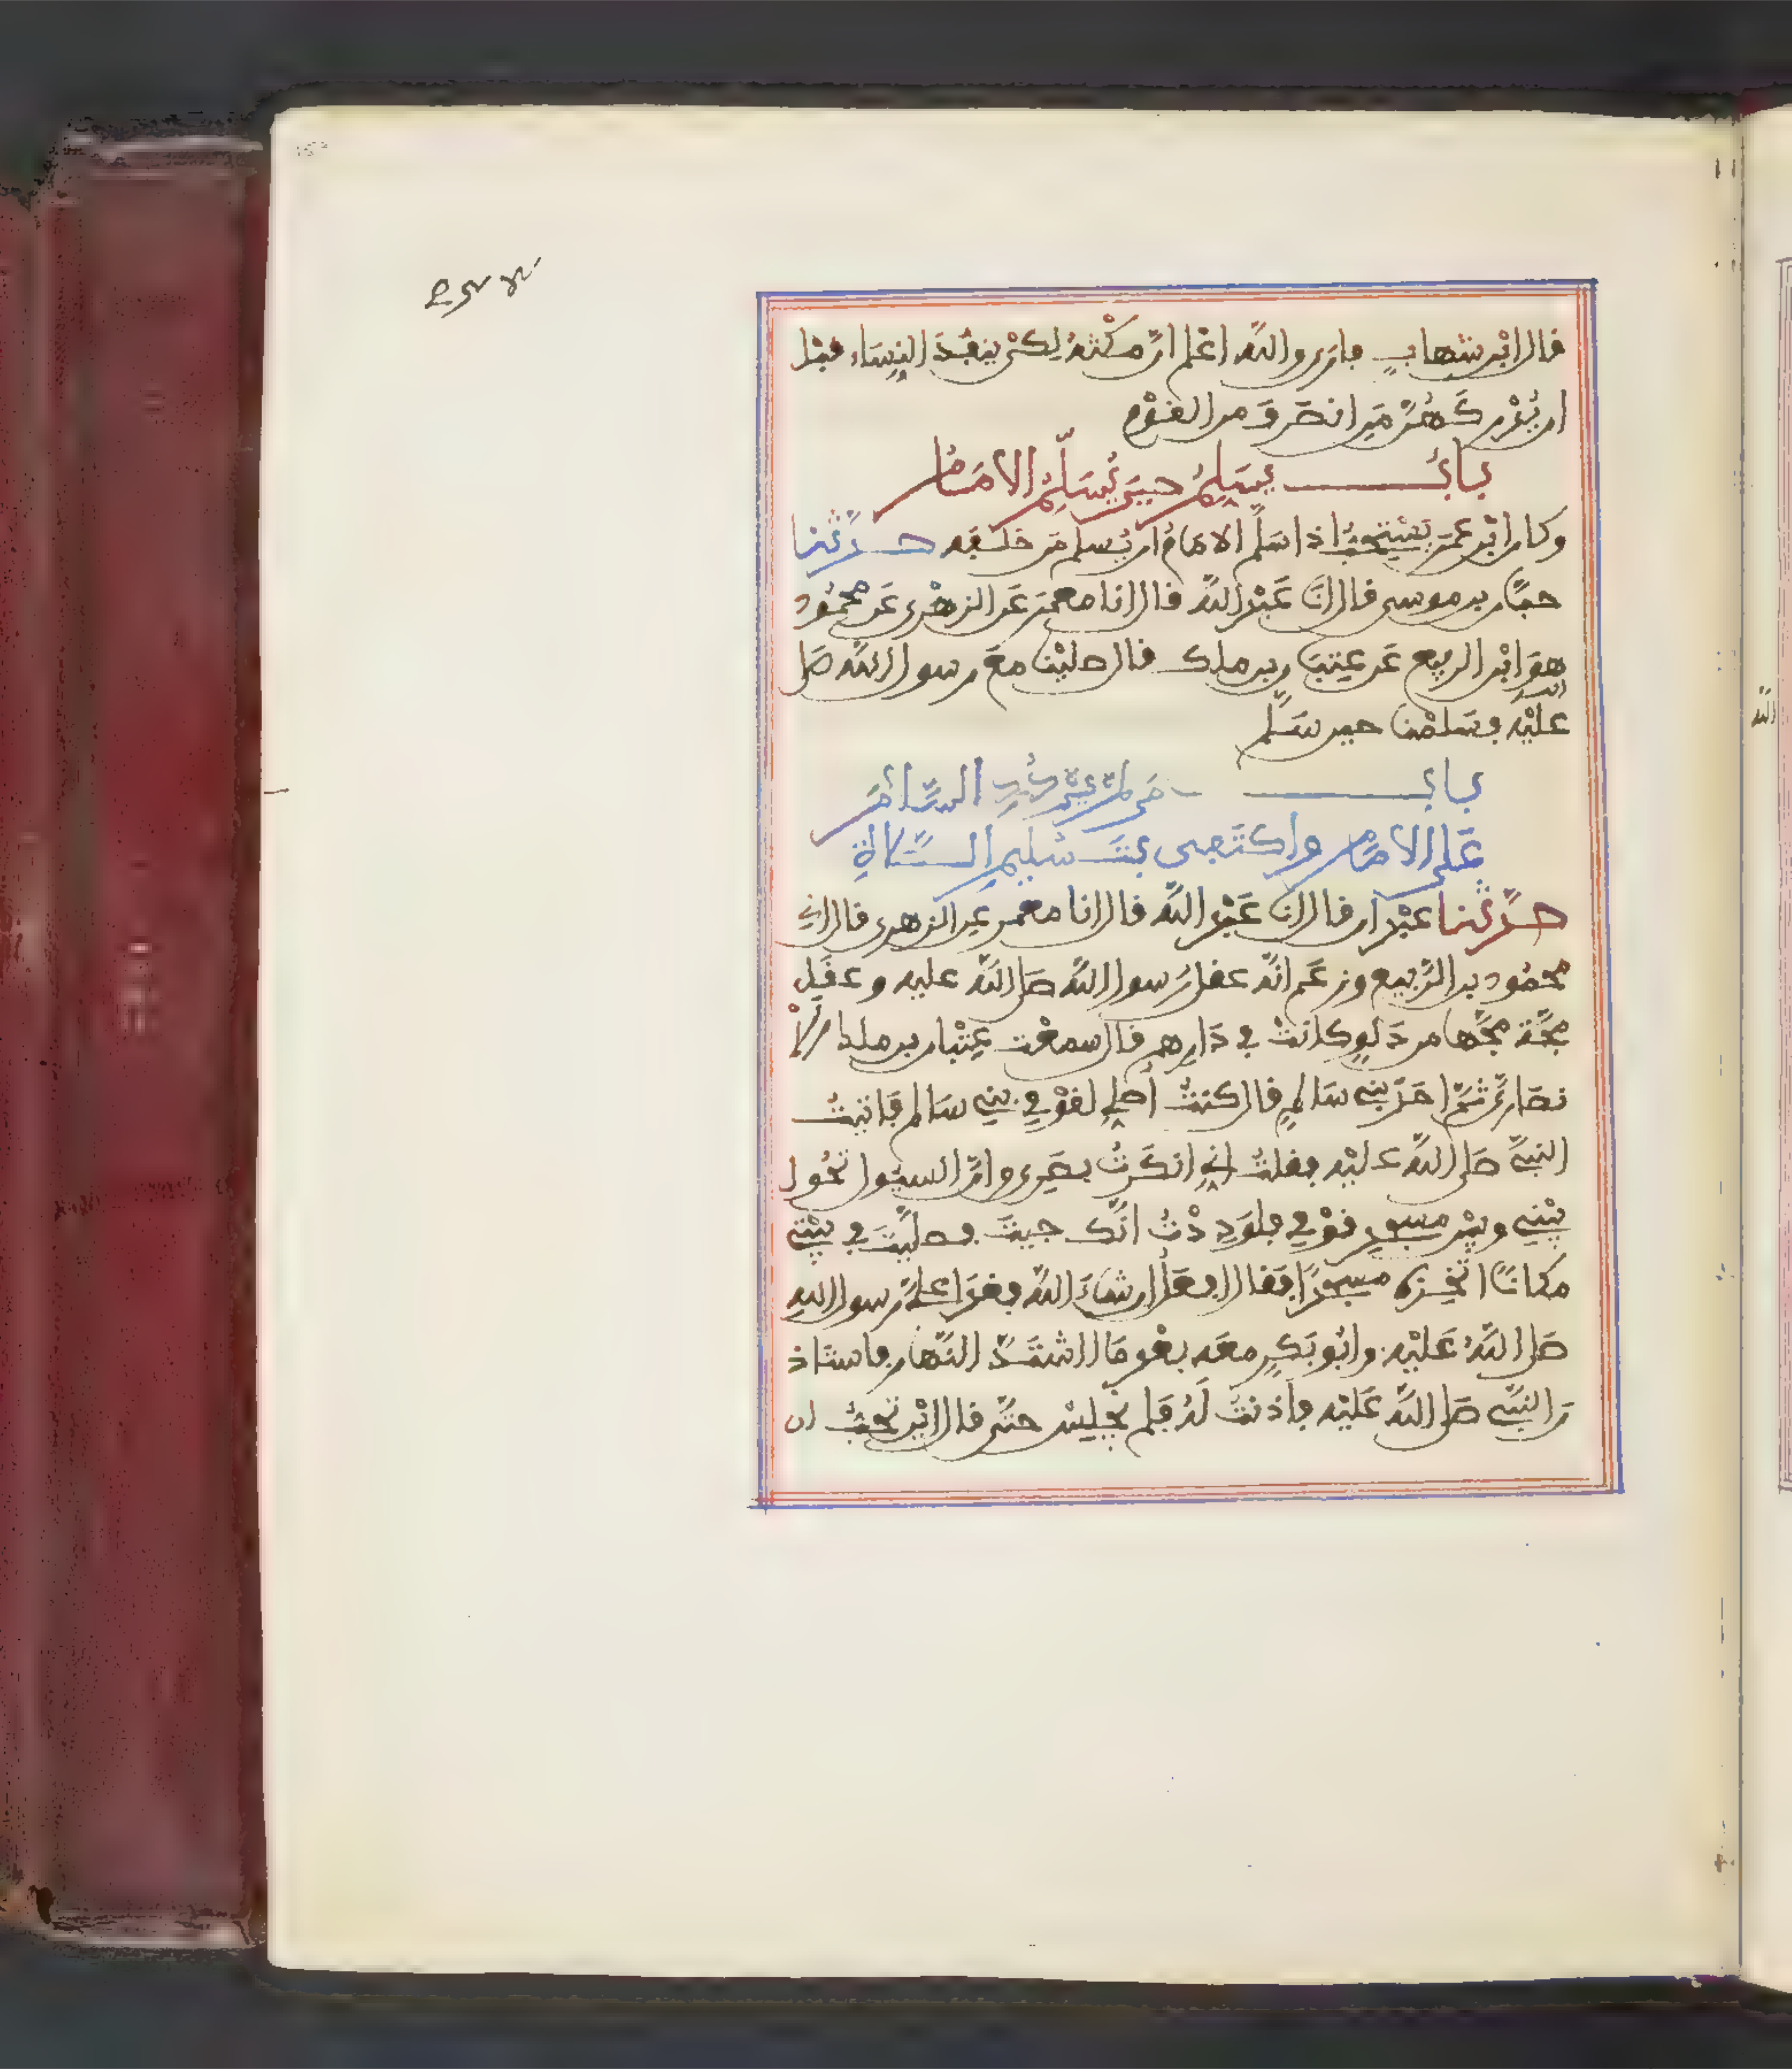 قال ابن شهاب فارى والله اعلم ان مكثه لكى ينفذ النساء قبل
ان يدركهن من انصرف من القوم
باب يسلم حين يسلم الامام
وكان ابن عمر يستحب اذا سلم الامام ان يسلم من خلفه حدثنا
حبان بن موسى قال انا عبد الله قال انا معمر عن الزهرى عن محمود
هو ابن الربيع عن عتبان بن ملك قال صلينا مع رسول الله صلى
الله
عليه وسلمنا حين سلم
باب من لم يرد السلام
على الامام واكتفى بتسليم الصلاة
حدثنا عبدان قال انا عبد الله قال انا معمر عن الزهرى قال اني
محمود بن الربيع وزعم انه عقل رسول الله صلى الله عليه وعقل
مجة مجها من دلو كانت في دارهم قال سمعت عتبان بن ملك الا
نصارى ثم احد بني سالم قال كنت اصلي لقومي بني سالم فاتيت
النبي صلى الله عليه فقلت اني انكرت بصرى وان السيول تحول
بيني وبين مسجد قومي فلوددت انك جيت فصليت في بيتي
مكانا اتخذه مسجدا فقال افعل ان شاء الله فغدا على رسول الله
صلى الله عليه وابو بكر معه بعد ما اشتد النهار فاستاذ
ن النبي صلى الله عليه فاذنت له فلم يجلس حتى قال اين تحب ان